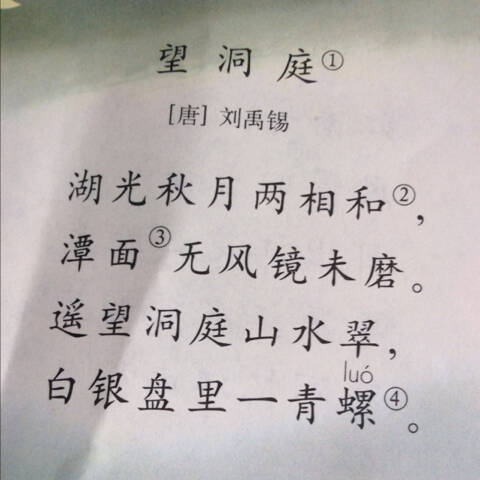 望洞庭①
[唐] 刘禹锡
湖光秋月两相和②,
潭面③无风镜未磨。
遥望洞庭山水翠,
luó
白银盘里一青螺④。